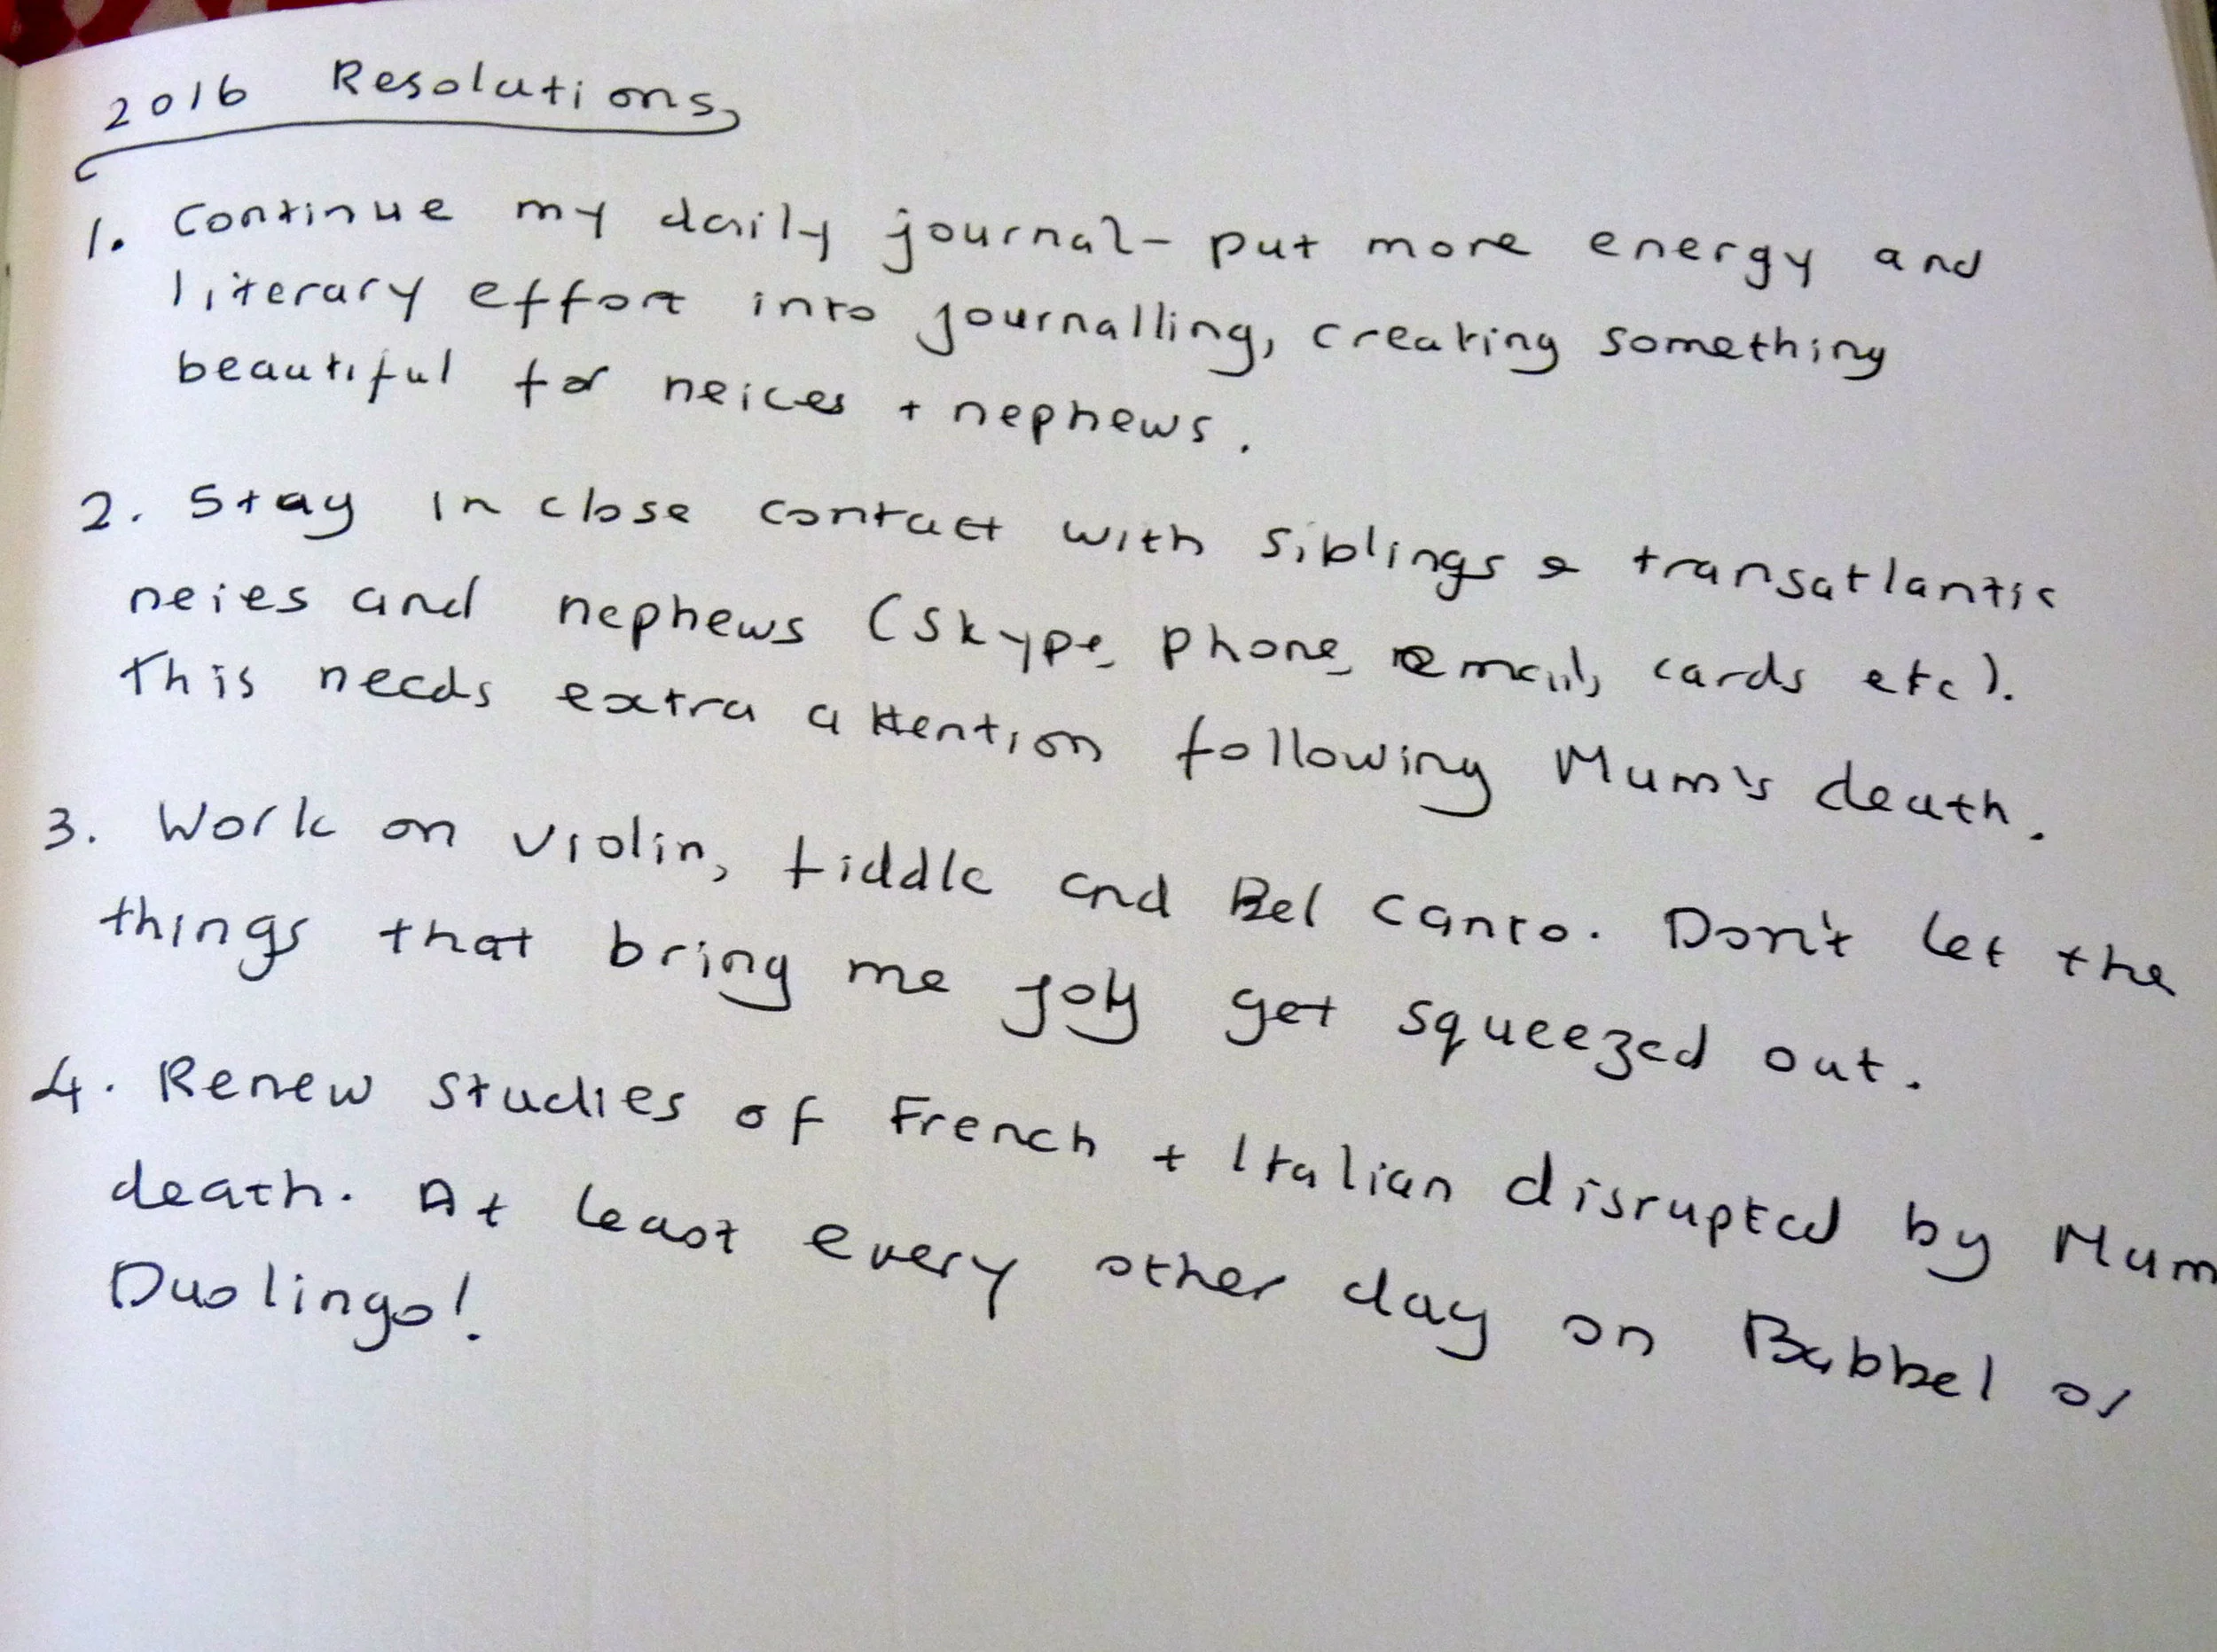 2016 Resolutions
1. Continue my daily journal - put more energy and
literary effort into journalling, creating something
beautiful for neices + nephews.
2. Stay in close contact with siblings & transatlantic
neies and nephews (Skype, phone, email, cards etc).
This needs extra attention following Mum's death.
3. Work on violin, fiddle and Bel Canto. Don't let the
things that bring me joy get squeezed out.
4. Renew studies of French + Italian disrupted by Mum
death. At least every other day on Babbel or
Duolingo!